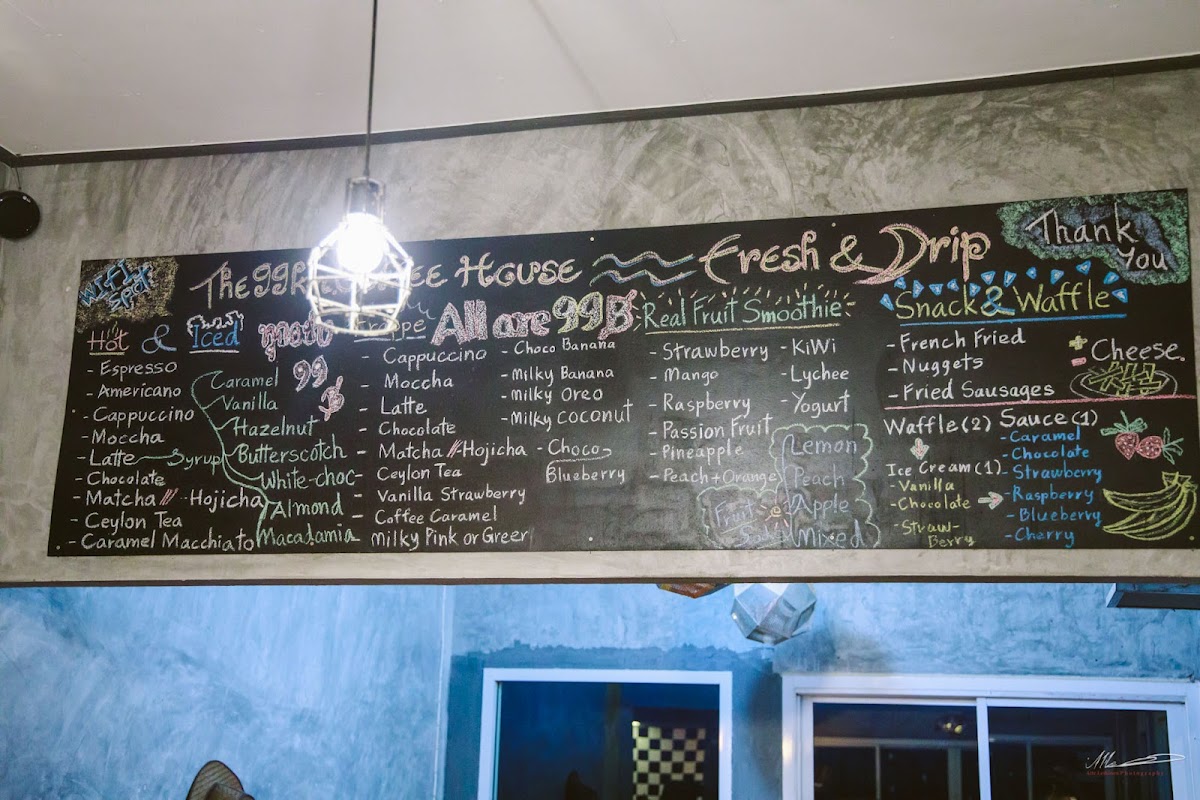 WiFi Spot
The 99 House Fresh & Drip
Thank You
Hot & Iced
- Espresso
- Americano
- Cappuccino
- Moccha
- Latte Syrup
- Chocolate
- Matcha // - Hojicha
- Ceylon Tea
- Caramel Macchiato
Caramel
Vanilla
Hazelnut
Butterscotch
White-choc
Almond
Macadamia
99
Frappe All are 99฿
- Cappuccino
- Moccha
- Latte
- Chocolate
- Matcha // Hojicha
- Ceylon Tea
- Vanilla Strawberry
- Coffee Caramel
- Milky Pink or Green
- Choco Banana
- Milky Banana
- Milky Oreo
- Milky Coconut
- Choco
Blueberry
Real Fruit Smoothie
- Strawberry
- Mango
- Raspberry
- Passion Fruit
- Pineapple
- Peach + Orange
- KiWi
- Lychee
- Yogurt
Fruit
Soda
Lemon
Peach
Apple
Mixed
Snack & Waffle
- French Fried
- Nuggets
- Fried Sausages
+ Cheese.
Waffle (2) Sauce (1)
Ice Cream (1)
- Vanilla
- Chocolate
- Straw-
Berry
- Caramel
- Chocolate
- Strawberry
- Raspberry
- Blueberry
- Cherry